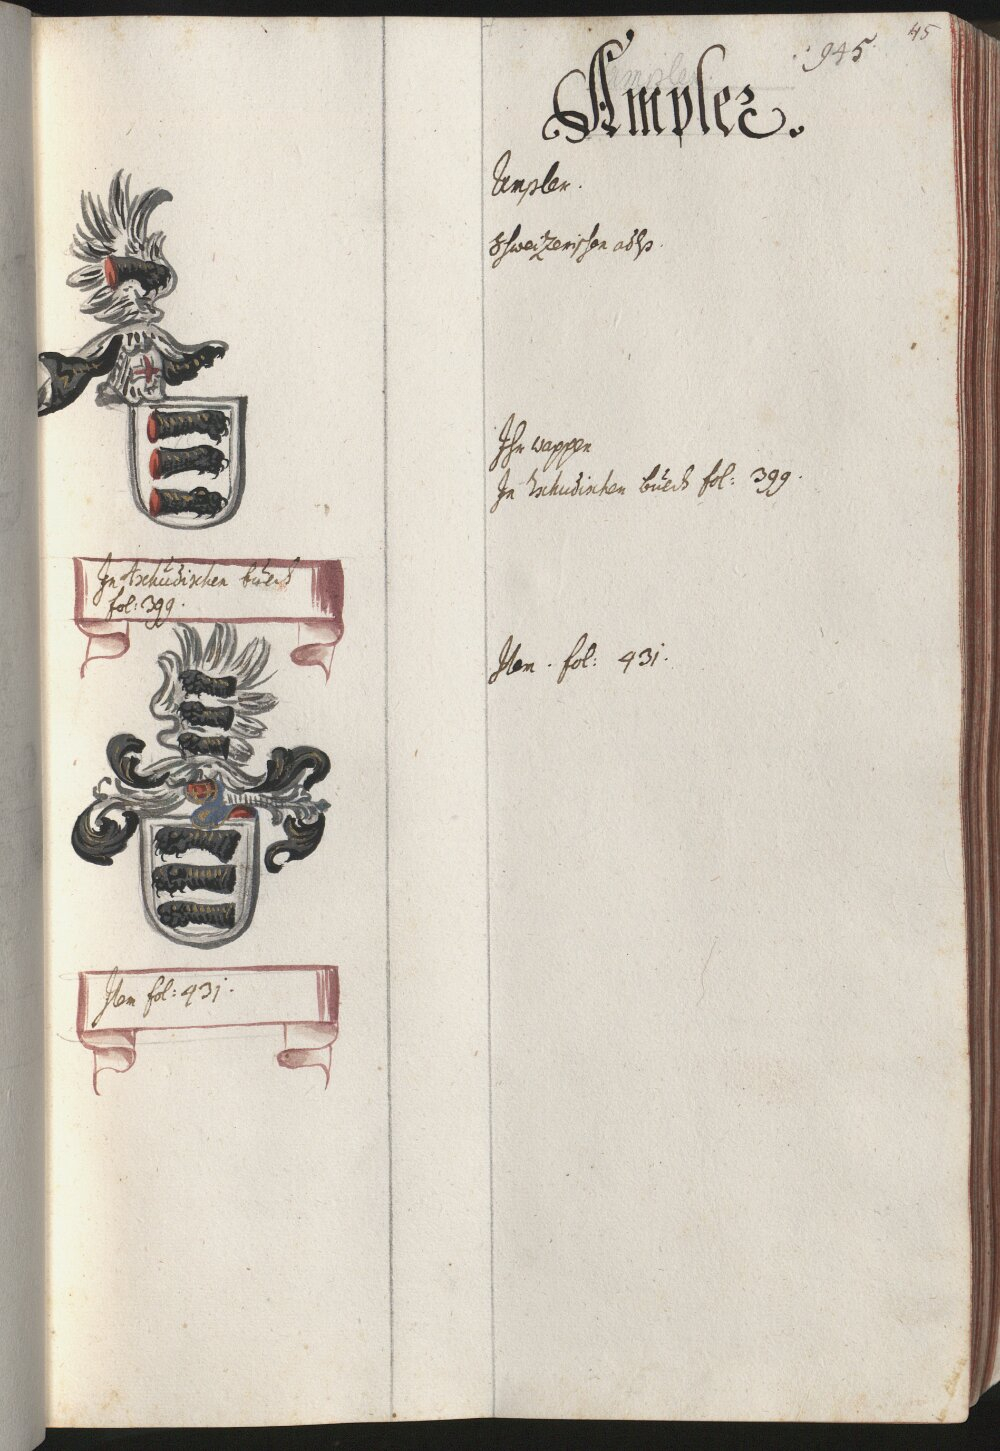 45
945
Ampler.
Ampler.
Schweitzerischen adls.
Ihr wappen
In Tschudischen buech fol: 399.
Item. fol: 431.
In Tschudischen buech
fol: 399.
Item fol: 431.